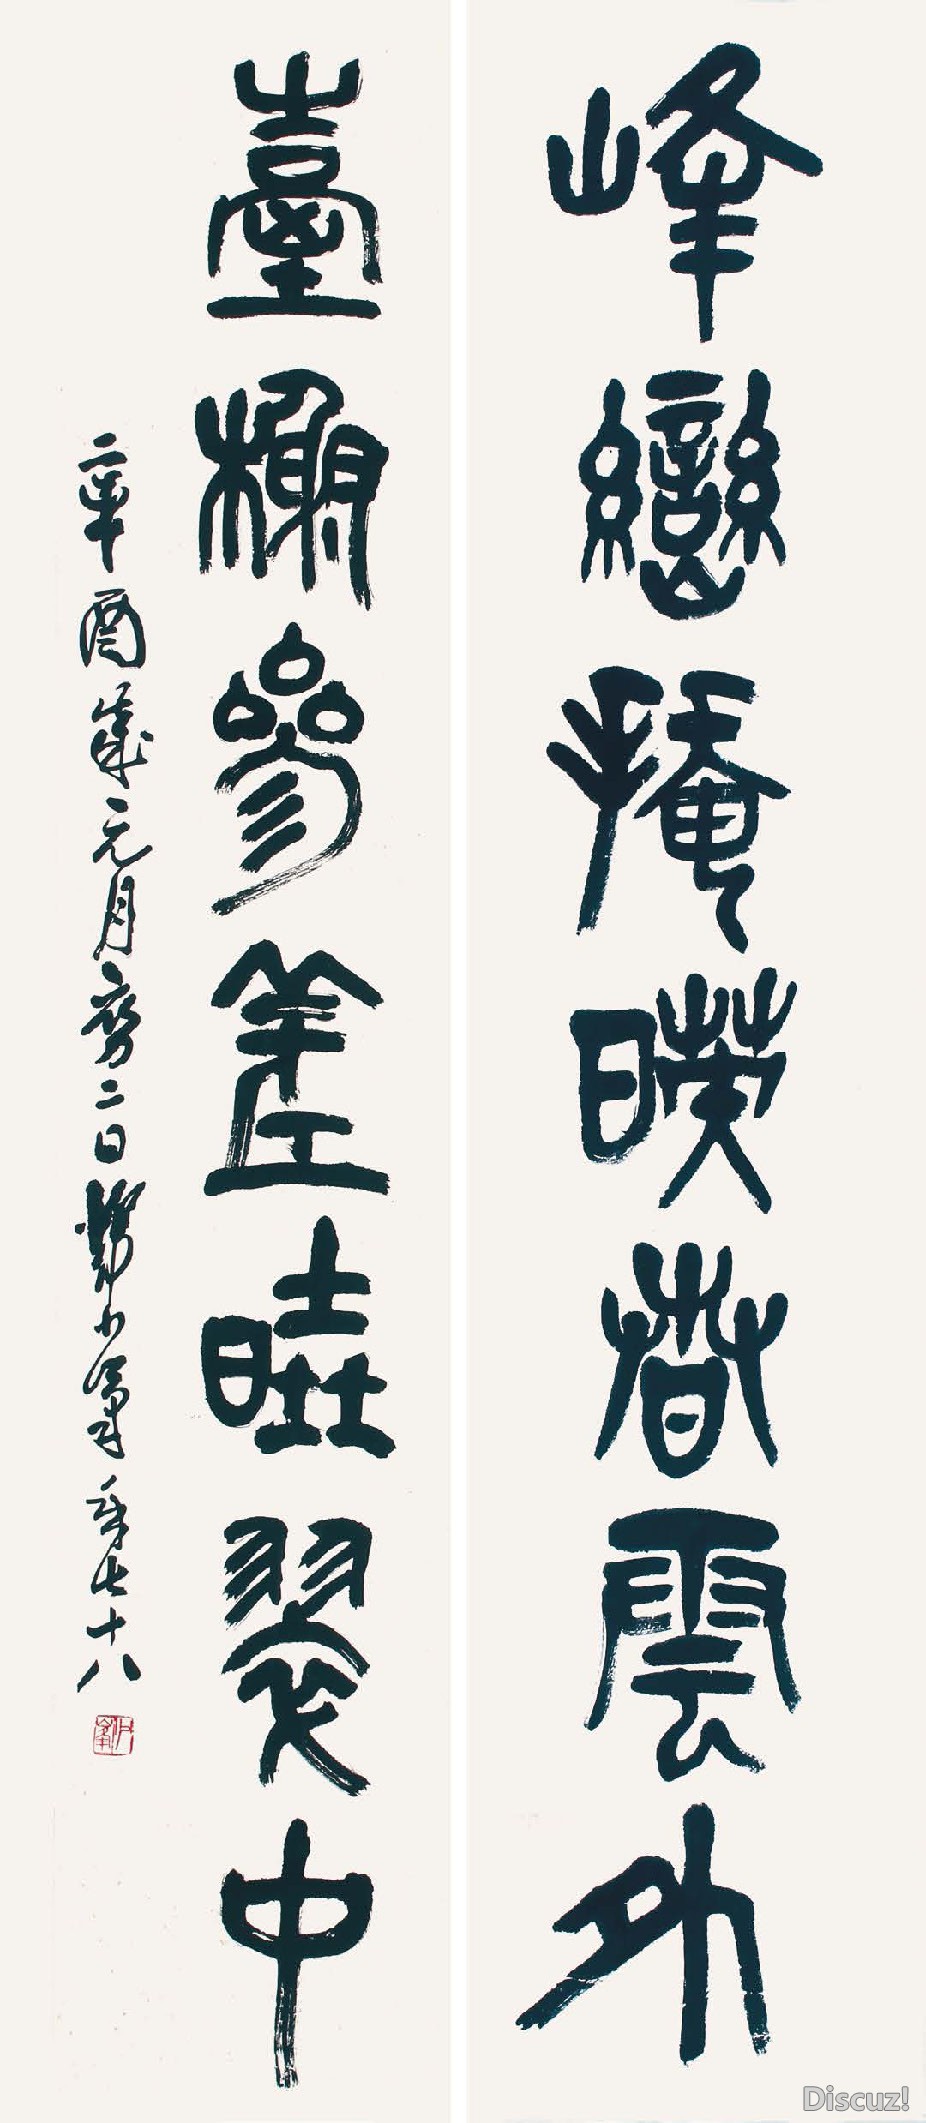 峰巒掩暎春雲外
臺榭參差曉翠中
辛酉歲元月二日年七十八
Discuz!